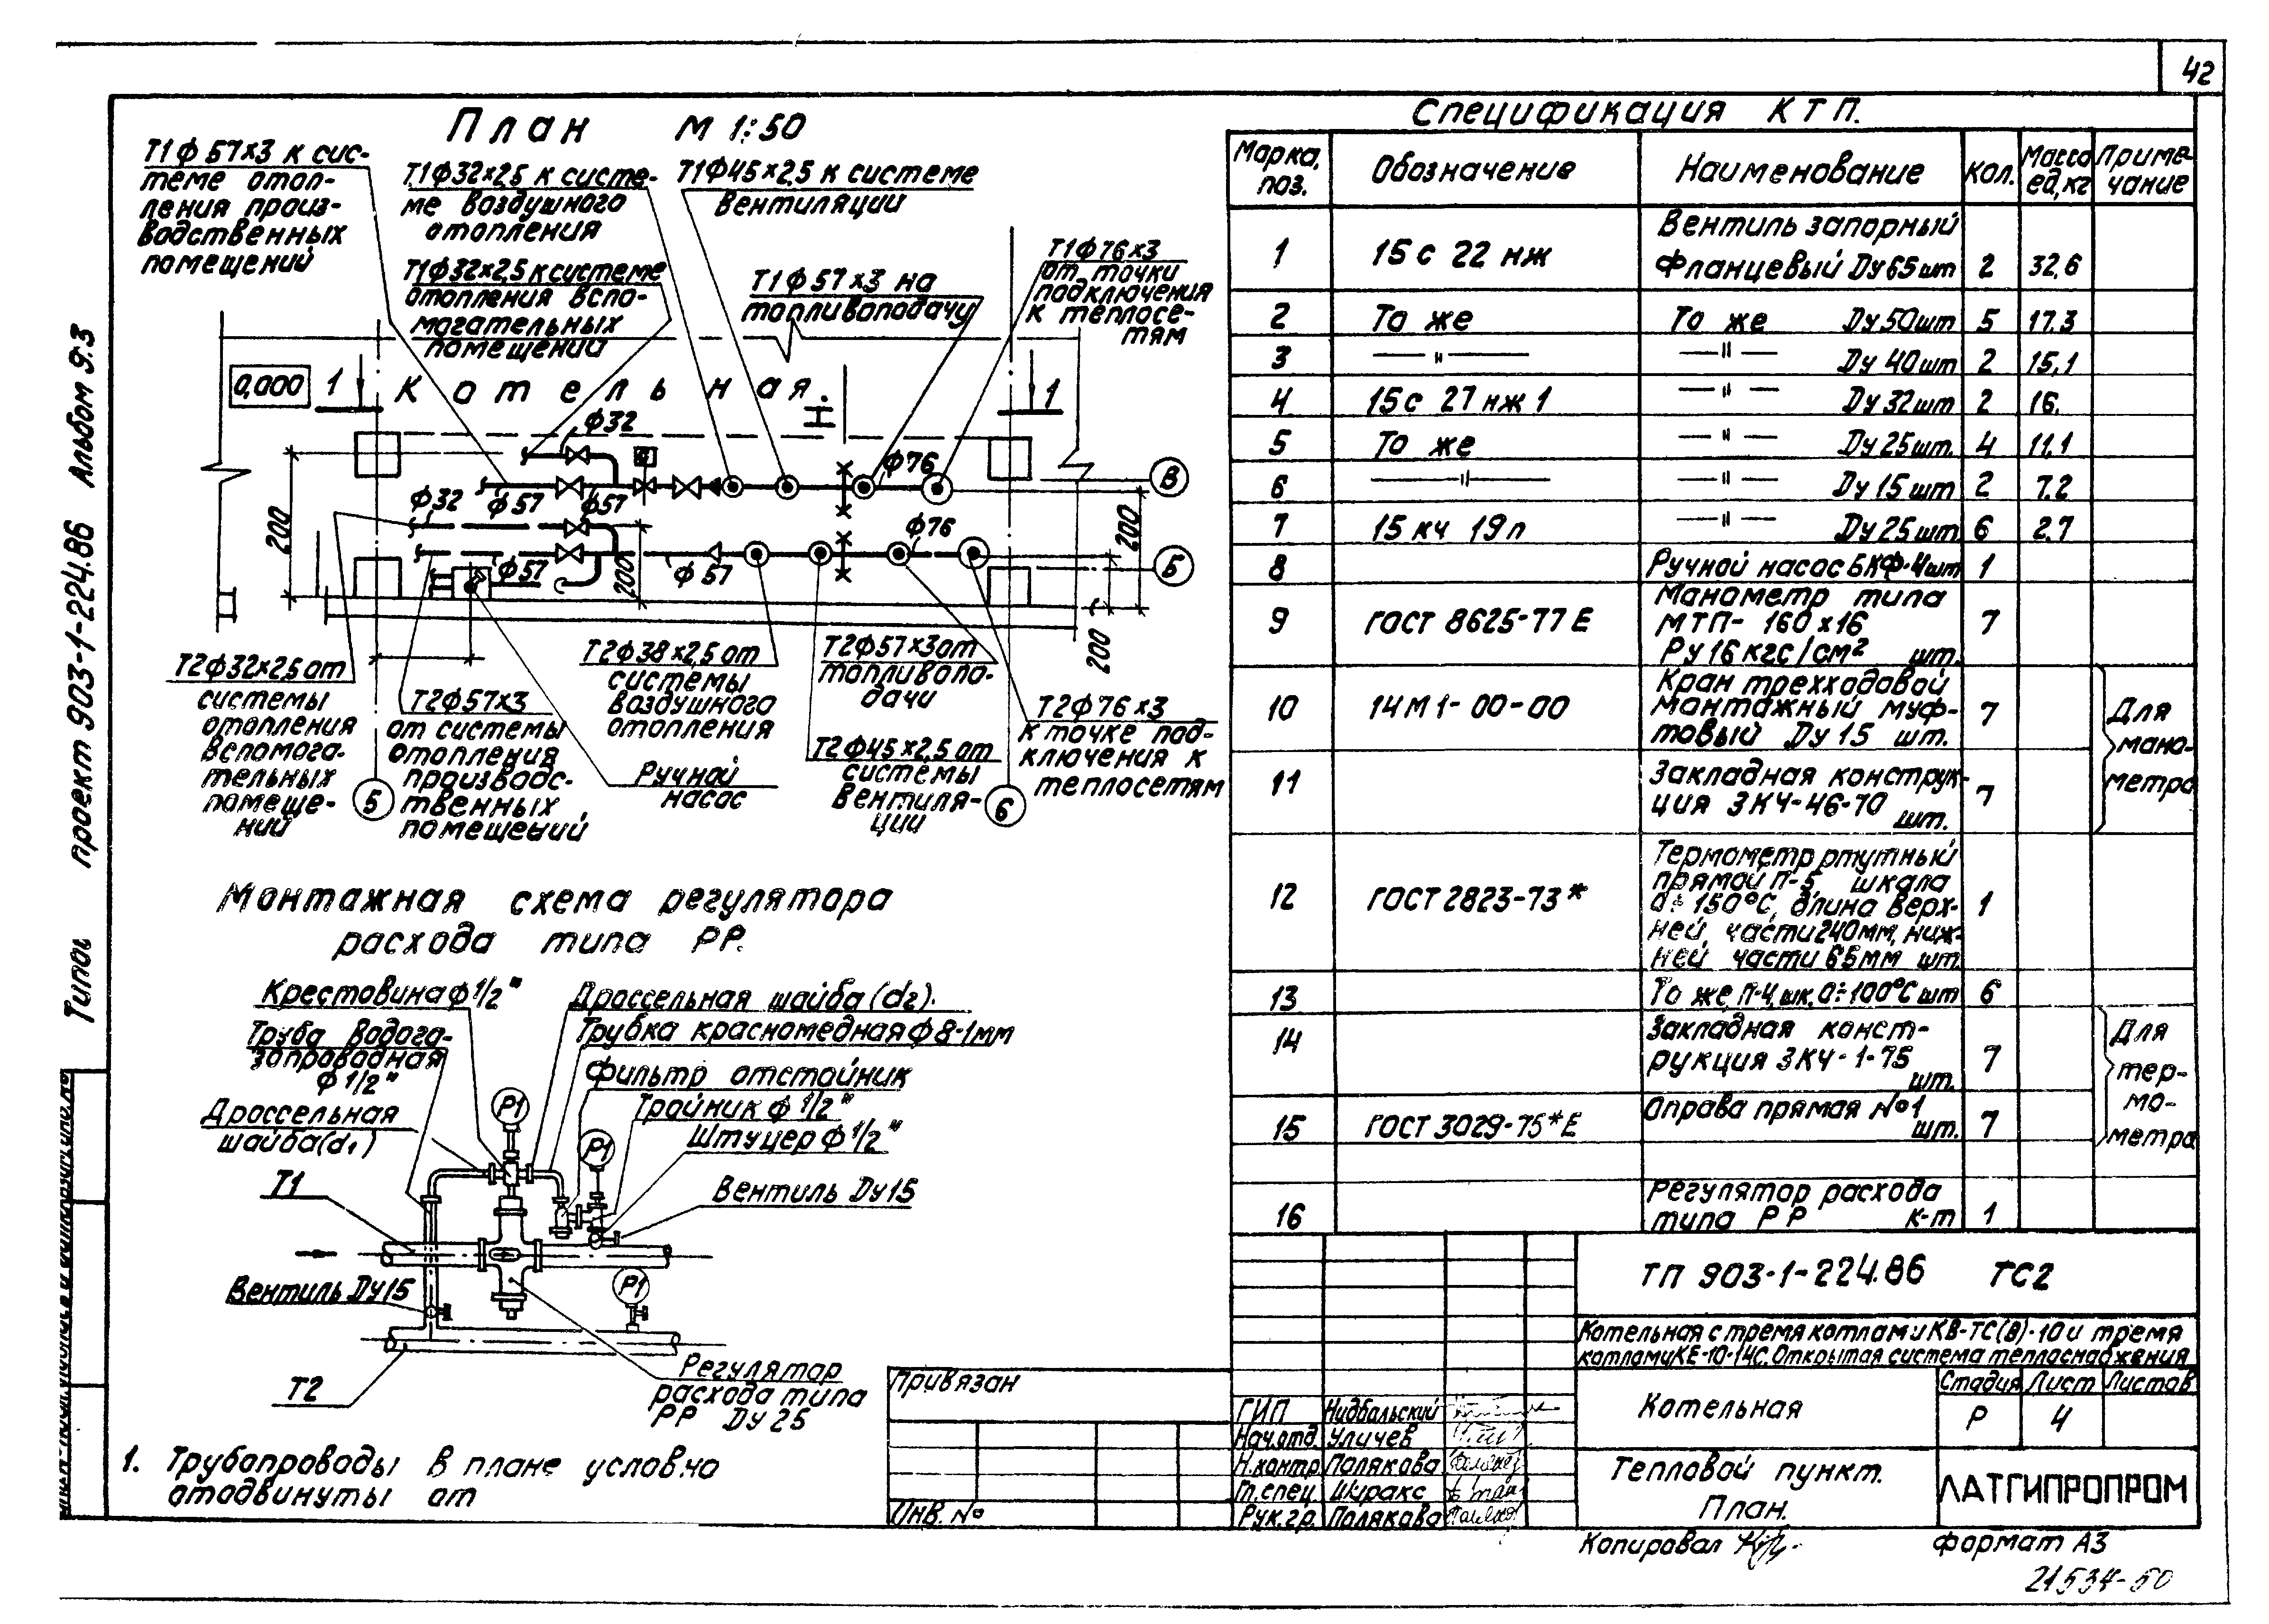 42
План М 1:50
Т1ф57х3 к сис-
теме отоп-
ления произ-
водственных
помещений
Т1ф32х2,5 к систе-
ме воздушного
отопления
Т1ф45х2,5 к системе
вентиляции
Т1ф32х2,5 к системе
отопления вспо-
могательных
помещений
Т1ф57х3 на
топливоподачу
Т1ф76х3
от точки
подключения
к теплосе-
тям
0,000
1
Котельная.
1
ф32
ф76
В
ф32
ф57
ф57
ф76
200
ф57
200
ф57
200
Б
200
Т2ф32х2,5 от
системы
отопления
вспомога-
тельных
помеще-
ний
5
Т2ф57х3
от системы
отопления
производс-
твенных
помещений
Т2ф38х2,5 от
системы
воздушного
отопления
Ручной
насос
Т2ф57х3 от
топливопо-
дачи
Т2ф45х2,5 от
системы
вентиля-
ции
6
Т2ф76х3
к точке под-
ключения к
теплосетям
Монтажная схема регулятора
расхода типа РР.
Крестовина ф1/2"
Труба водога-
зопроводная
ф1/2"
Дроссельная
шайба(d1)
Дроссельная шайба (d2).
Трубка красномедная ф8·1мм
Фильтр отстойник
Тройник ф1/2"
Штуцер ф1/2"
Вентиль Ду15
Р1
Р1
Т1
Р1
Вентиль Ду15
Т2
Регулятор
расхода типа
РР Ду 25
1. Трубопроводы в плане условно
отодвинуты от
Альбом 9.3
проект 903-1-224.86
Типов
Спецификация КТП.
Марка, поз. Обозначение Наименование Кол. Масса ед, кг Приме-чание
1 15с 22 нж Вентиль запорный
фланцевый Ду65 шт 2 32,6
2 То же То же Ду50 шт 5 17.3
3 —"— —"— Ду 40 шт 2 15,1
4 15с 27 нж 1 —"— Ду32 шт 2 16.
5 То же —"— Ду25 шт. 4 11,1
6 —"— —"— Ду15 шт 2 7.2
7 15 кч 19п —"— Ду25 шт 6 2.7
8 Ручной насос БКФ-4 шт 1
9 ГОСТ 8625-77 Е Манометр типа
МТП-160х16
Ру16 кгс/см² шт. 7
10 14М1-00-00 Кран трехходовой
монтажный муф-
товый Ду15 шт. 7
11 Закладная конструк-
ция ЗКЧ-46-70
шт. 7
Для
мано-
метра
12 ГОСТ 2823-73* Термометр ртутный
прямой П-5, шкала
0÷150°С, длина верх-
ней части 240мм, ниж-
ней части 65мм шт. 1
13 То же, П-4, шк. 0÷100°С шт 6
14 Закладная конст-
рукция ЗКЧ-1-75
шт. 7
15 ГОСТ 3029-75*Е Оправа прямая №1
шт. 7
Для
тер-
мо-
метра
16 Регулятор расхода
типа РР к-т 1
ТП 903-1-224.86 ТС2
Котельная с тремя котлами КВ-ТС(В)-10 и тремя
котлами КЕ-10-14С. Открытая система теплоснабжения
Привязан
Инв. №
ГИП Нидбальский
Нач.отд. Уличев
Н.контр Полякова
Гл.спец. Ширакс
Рук.гр. Полякова
Котельная
Стадия Лист Листов
Р 4
Тепловой пункт.
План.
ЛАТГИПРОПРОМ
Копировал
Формат А3
21534-50